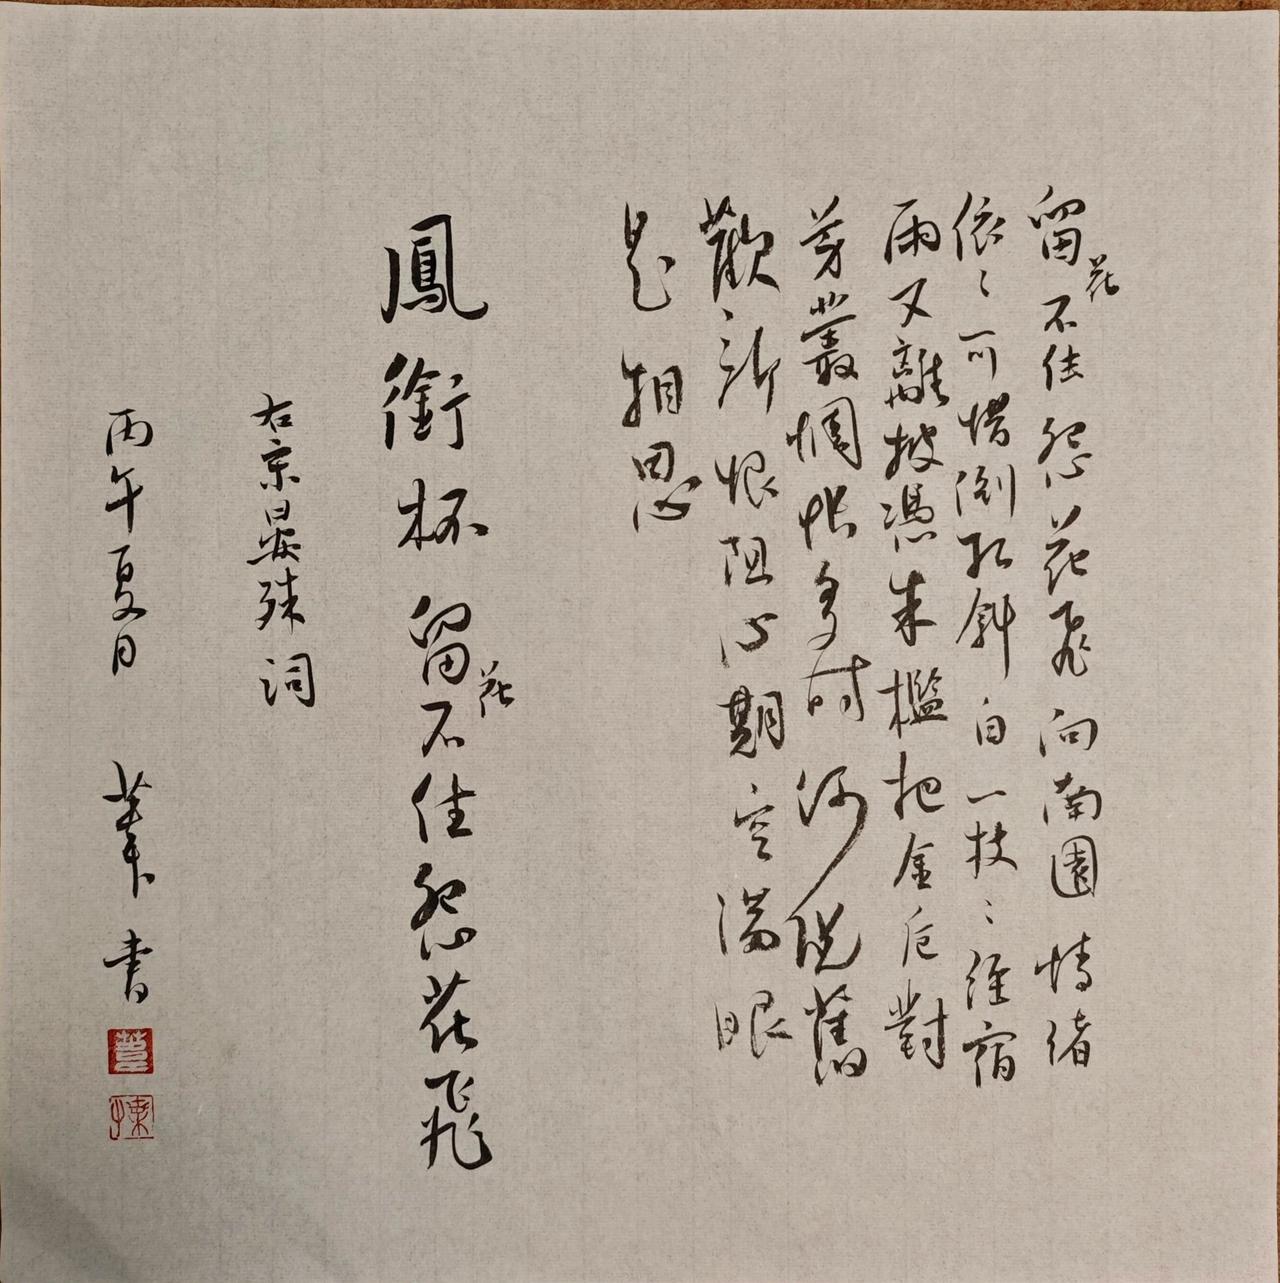 留花不住怨花飛向南園情緒
依〻可惜倒紅斜白一枝〻經宿
雨又離披憑朱檻把金卮對
芳叢惆悵多時何況舊
歡新恨阻心期空滿眼
是相思
鳳銜杯 留花不住怨花飛
右宋晏殊詞
丙午夏日 書